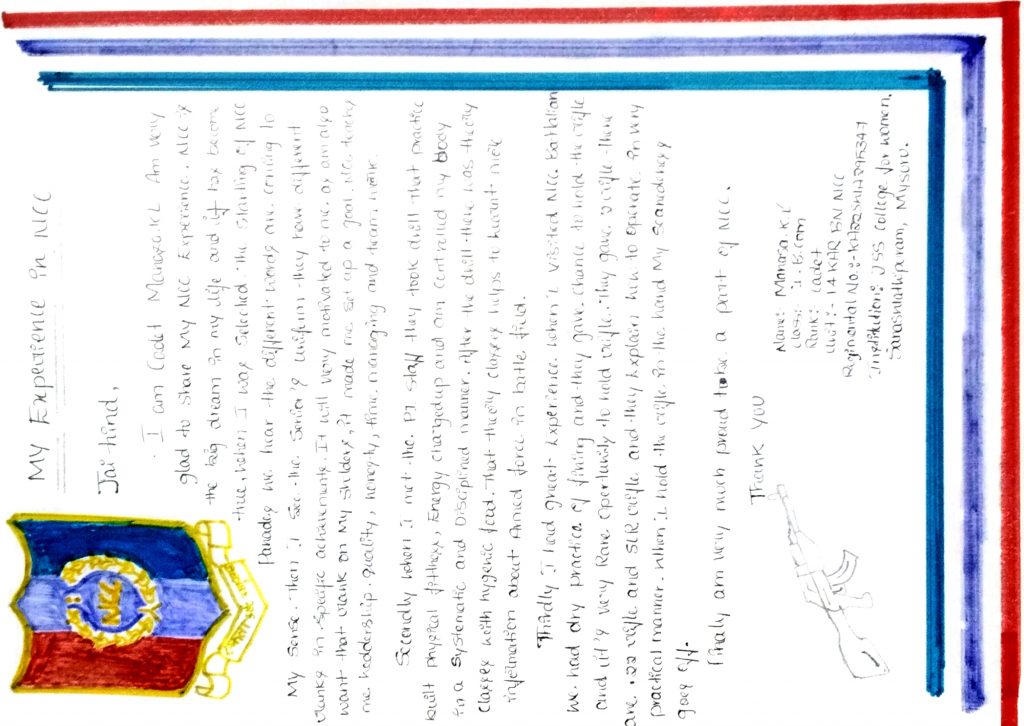 My Experience in NCC
Jai-hind,
I am Cadet Manasa.K.L Am very
glad to share My NCC Experience. NCC is
the big dream in my life and it has become
true, when I was Selected. the starting of NCC
parades we hear the different words are coming to
My sense. Then i see the senior's uniform they have different
ranks in specific achievments. It will very motivated to me. as am also
want that rank on My sholders, it made me set up a goal. NCC teachs
me leaddership quality, honesty, time, managing and team work.
Secondly when i met the PI staff they took drill that practice
built physical fittness, Energy chargedup and am controlled my body
in a systematic and Disciplined manner. after the drill there was theory
classes with hygenic food. That theory classes helps to learnt
information about Armed force in battle field.
Thirdly I had great Experience when i visited NCC Battalion
we had dry practice of firing and they gave chance to hold the rifle
and it's very Rare opertunity to hold rifle. they gave rifle there
are .22 rifle and SLR rifle and they Explain how to operate in very
practical manner. when i hold the rifle in the hand My scaredness
goes off.
finaly am very much proud to be a part of NCC.
Thank you
Name: Manasa.K.L
class: B.com
Rank: cadet
Unit:- 14 KAR BN NCC
Regimental No:-
Institution: JSS College for women,
Saraswathipuram, Mysore.
NCC